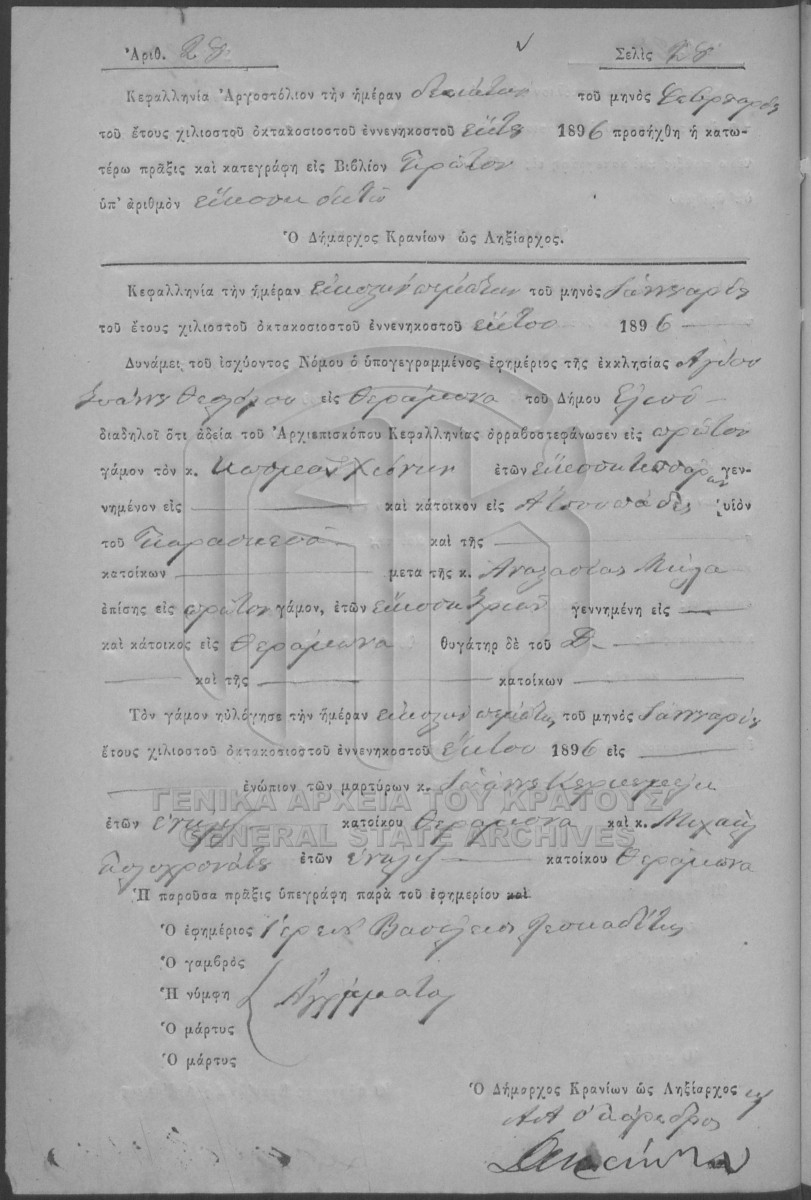 Ἀριθ. 28 Σελὶς 28
Κεφαλληνία Ἀργοστόλιον τὴν ἡμέραν δεκάτην τοῦ μηνὸς
τοῦ ἔτους χιλιοστοῦ ὀκτακοσιοστοῦ ἐννενηκοστοῦ ἕκτου 1896 προσήχθη ἡ κατω-
τέρω πρᾶξις καὶ κατεγράφη εἰς Βιβλίον Πρῶτον
ὑπ' ἀριθμὸν εἴκοσι ὀκτὼ
Ὁ Δήμαρχος Κρανίων ὡς Ληξίαρχος.
Κεφαλληνία τὴν ἡμέραν τοῦ μηνὸς Ἰαννουαρίου
τοῦ ἔτους χιλιοστοῦ ὀκτακοσιοστοῦ ἐννενηκοστοῦ ἕκτου 1896
Δυνάμει τοῦ ἰσχύοντος Νόμου ὁ ὑπογεγραμμένος ἐφημέριος τῆς ἐκκλησίας Ἁγίου
Ἰωάννη Θεολόγου εἰς Θεράμωνα τοῦ Δήμου
διαδηλοῖ ὅτι ἀδείᾳ τοῦ Ἀρχιεπισκόπου Κεφαλληνίας ὀρραβοστεφάνωσεν εἰς πρῶτον
γάμον τὸν κ. Κοσμεᾶν ἐτῶν γεν-
νημένον εἰς καὶ κάτοικον εἰς υἱὸν
τοῦ Παρασκευᾶ καὶ τῆς
κατοίκων μετα τῆς κ. Ἀναστασίας
ἐπίσης εἰς πρῶτον γάμον, ἐτῶν εἴκοσι τριῶν γεννημένη εἰς
καὶ κάτοικος εἰς Θεράμωνα θυγάτηρ δὲ τοῦ
καὶ τῆς κατοίκων
Τὸν γάμον ηὐλόγησε τὴν ἡμέραν τοῦ μηνὸς Ἰαννουαρίου
ἔτους χιλιοστοῦ ὀκτακοσιοστοῦ ἐννενηκοστοῦ ἕκτου 1896 εἰς
ἐνώπιον τῶν μαρτύρων κ. Ἰωάννη
ΓΕΝΙΚΑ ΑΡΧΕΙΑ ΤΟΥ ΚΡΑΤΟΥΣ
ἐτῶν ἐνῆλιξ κατοίκου Θεράμωνα καὶ κ. Μιχαὴλ
GENERAL STATE ARCHIVES
ἐτῶν ἐνῆλιξ κατοίκου Θεράμωνα
Ἡ παροῦσα πρᾶξις ὑπεγράφη παρὰ τοῦ ἐφημερίου καὶ
Ὁ ἐφημέριος Ἱερεὺς Βασίλειος
Ὁ γαμβρὸς
Ἡ νύμφη Ἀγράμματοι
Ὁ μάρτυς
Ὁ μάρτυς
Ὁ Δήμαρχος Κρανίων ὡς Ληξίαρχος
ὁ πάρεδρος